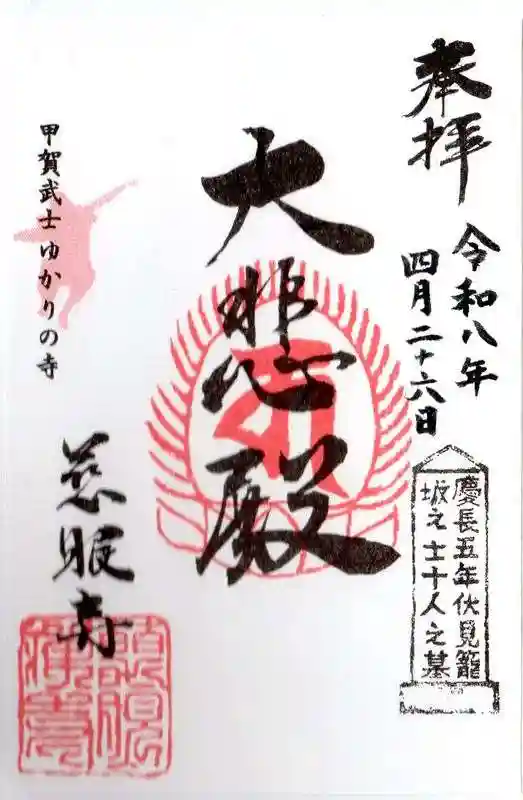 奉拝
令和八年
四月二十六日
慶長五年伏見籠
城之士十人之墓
大悲殿
甲賀武士ゆかりの寺
慈眼寺